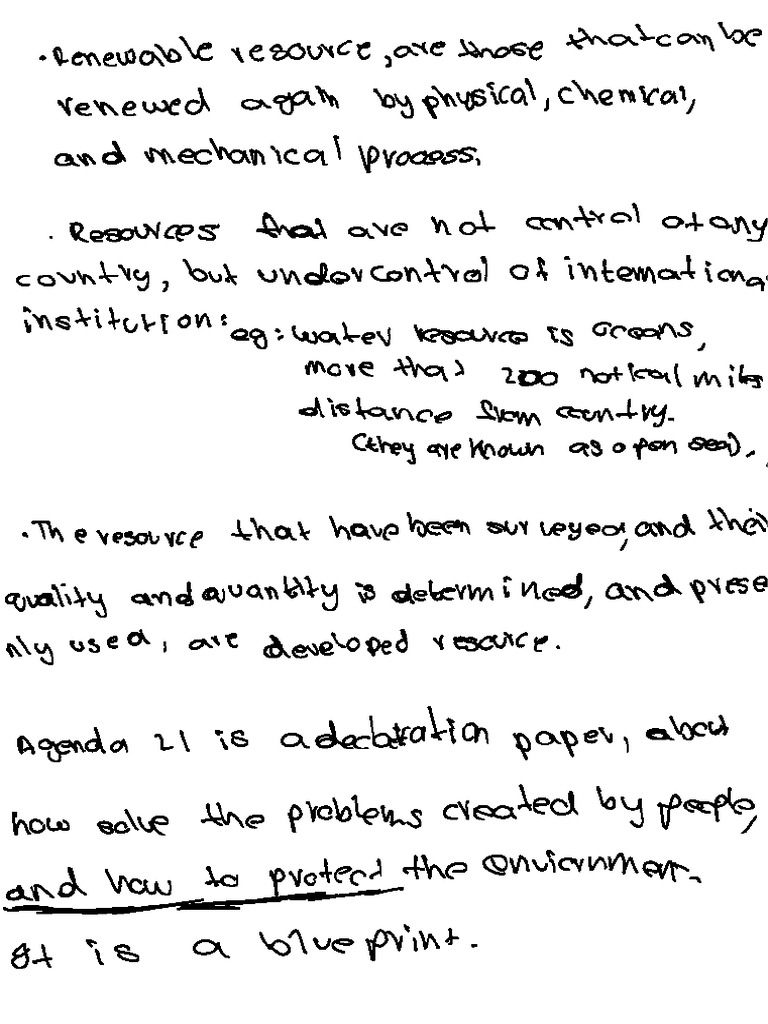 · Renewable resource, are those that can be
renewed again by physical, chemical,
and mechanical process.
· Resources that are not control of any
country, but under control of internationa
institution: eg: water resource is oceans,
more that 200 notical miles
distance from country.
(they are known as open sea).
· The resource that have been surveyed, and their
quality and quantity is determined, and prese
nly used, are developed resource.
Agenda 21 is a declaration paper, about
how solve the problems created by people,
and how to protect the
It is a blueprint.